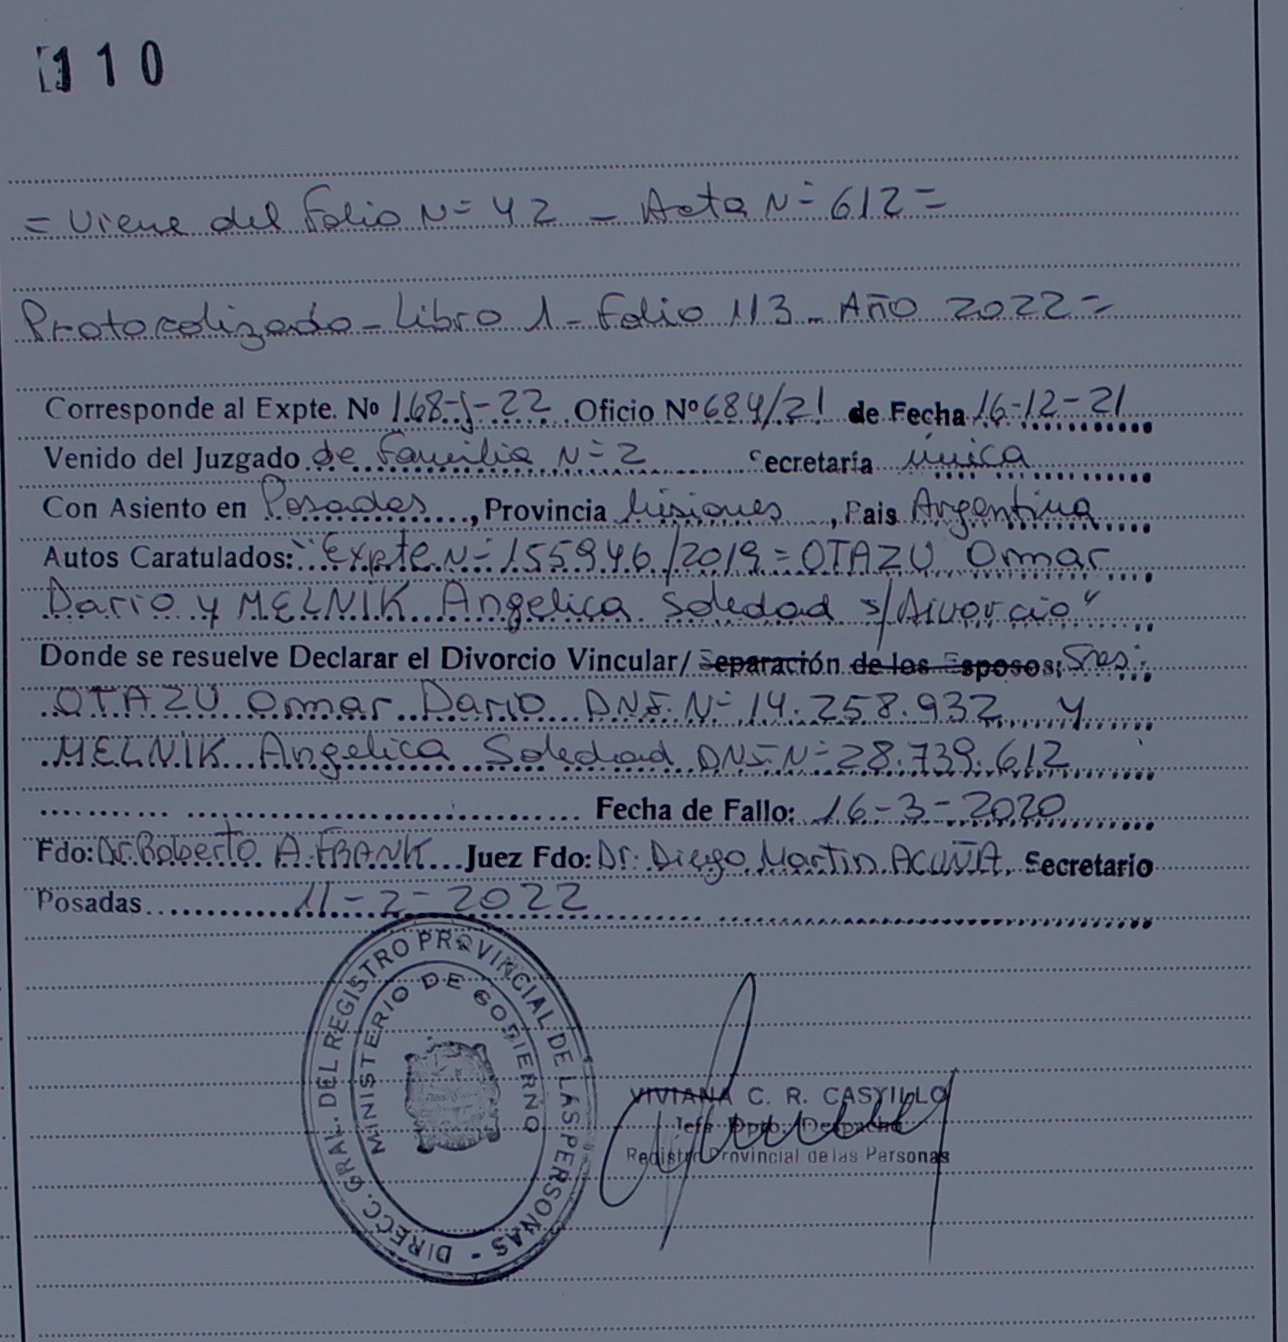 110
= Viene del Folio Nº 42 - Acta Nº 612 =
Protocolizado - Libro 1 - Folio 113 - Año 2022 =
Corresponde al Expte. Nº 168-J-22 Oficio Nº 684/21 de Fecha 16-12-21
Venido del Juzgado de Familia Nº 2 Secretaría única
Con Asiento en Posadas, Provincia Misiones, Pais Argentina
Autos Caratulados: "Expte Nº 155946/2019 = OTAZU Omar
Dario y MELNIK Angelica Soledad s/Divorcio"
Donde se resuelve Declarar el Divorcio Vincular/ Separación de los Esposos: Sres:
OTAZU Omar Dario DNI. Nº 14.258.932 y
MELNIK Angelica Soledad DNI Nº 28.739.612
Fecha de Fallo: 16-3-2020
Fdo: Dr. Roberto A. FRANK Juez Fdo: Dr. Diego Martin ACUÑA. Secretario
Posadas 11-2-2022
DIRECC. GRAL. DEL REGISTRO PROVINCIAL DE LAS PERSONAS -
MINISTERIO DE GOBIERNO
VIVIANA C. R. CASTILLO
Jefe Dpto. Despacho
Registro Provincial de las Personas